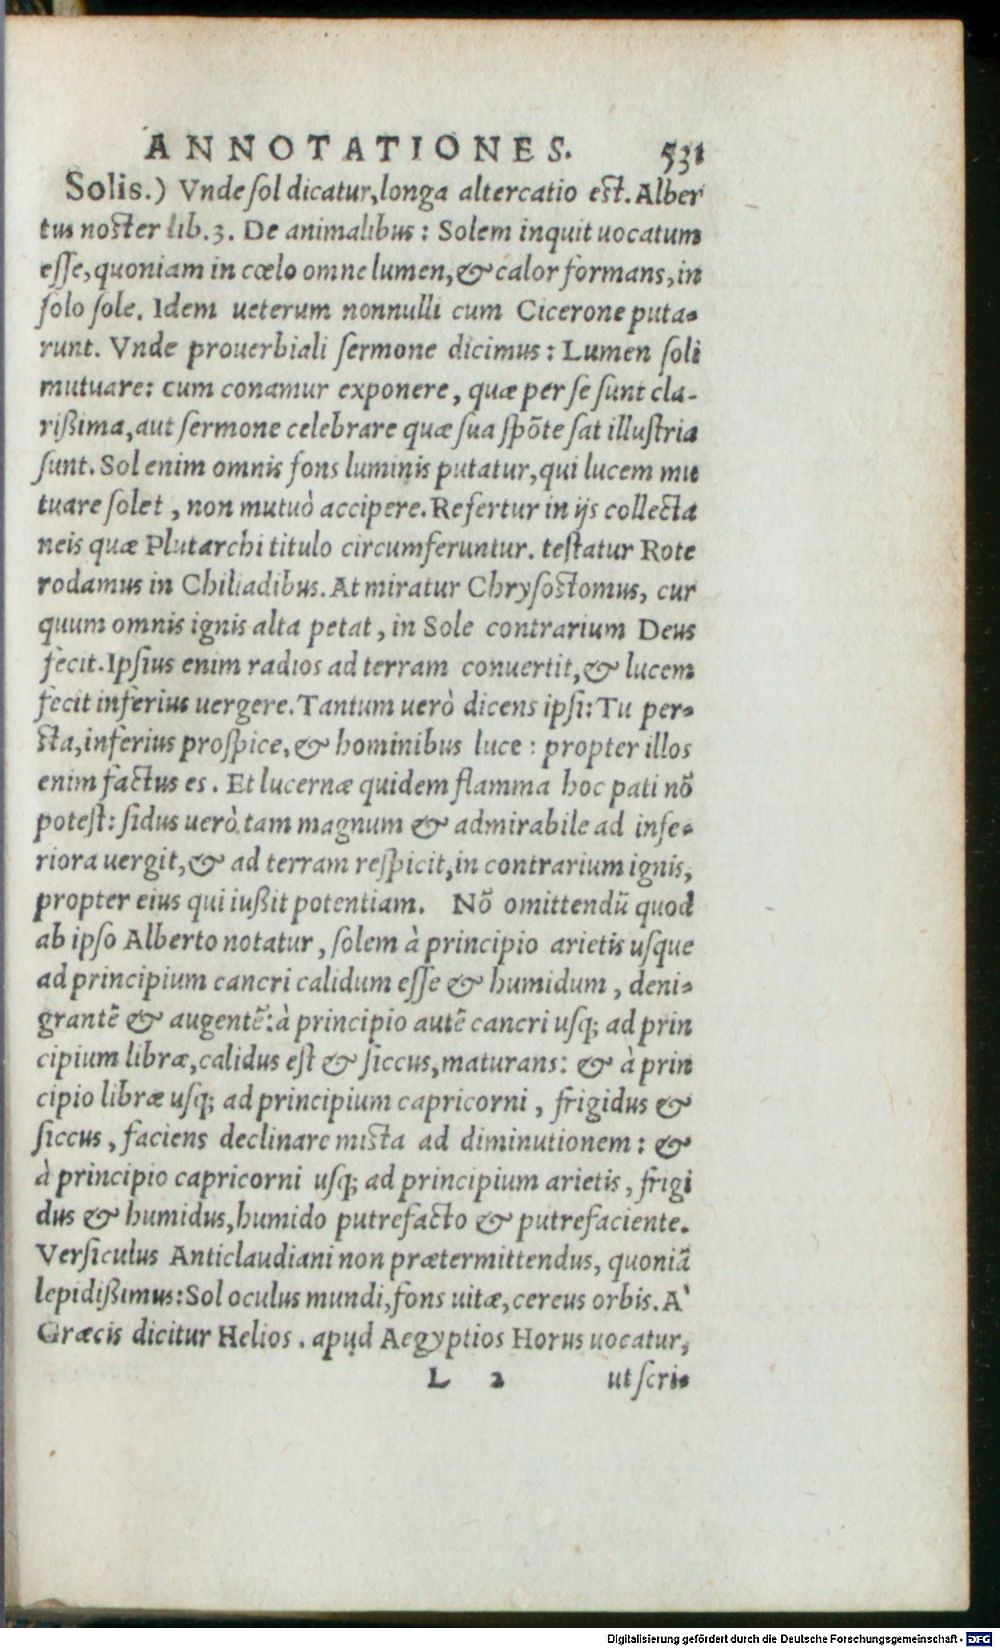 ANNOTATIONES. 531
Solis.) Vnde sol dicatur, longa altercatio est. Alber
tus noster lib.3. De animalibus: Solem inquit uocatum
esse, quoniam in cœlo omne lumen, & calor formans, in
solo sole. Idem ueterum nonnulli cum Cicerone puta-
runt. Vnde prouerbiali sermone dicimus: Lumen soli
mutuare: cum conamur exponere, quæ per se sunt cla-
rißima, aut sermone celebrare quæ sua spōte sat illustria
sunt. Sol enim omnis fons luminis putatur, qui lucem mu
tuare solet, non mutuò accipere. Refertur in ijs collecta
neis quæ Plutarchi titulo circumferuntur. testatur Rote
rodamus in Chiliadibus. At miratur Chrysostomus, cur
quum omnis ignis alta petat, in Sole contrarium Deus
fecit. Ipsius enim radios ad terram conuertit, & lucem
fecit inferius uergere. Tantum uerò dicens ipsi: Tu per-
sta, inferius prospice, & hominibus luce: propter illos
enim factus es. Et lucernæ quidem flamma hoc pati nō
potest: sidus uerò tam magnum & admirabile ad infe-
riora uergit, & ad terram respicit, in contrarium ignis,
propter eius qui iußit potentiam. Nō omittendū quod
ab ipso Alberto notatur, solem à principio arietis usque
ad principium cancri calidum esse & humidum, deni-
grantē & augentē: à principio autē cancri usq; ad prin
cipium libræ, calidus est & siccus, maturans: & à prin
cipio libræ usq; ad principium capricorni, frigidus &
siccus, faciens declinare mista ad diminutionem: &
à principio capricorni usq; ad principium arietis, frigi
dus & humidus, humido putrefacto & putrefaciente.
Versiculus Anticlaudiani non prætermittendus, quoniā
lepidißimus: Sol oculus mundi, fons uitæ, cereus orbis. A`
Græcis dicitur Helios. apud Aegyptios Horus uocatur,
L 2 ut scri-
Digitalisierung gefördert durch die Deutsche Forschungsgemeinschaft - DFG